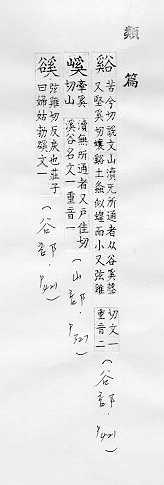 類篇
谿 苦兮切說文山瀆无所通者从谷奚聲
又堅奚切蠰谿土螽似蝗而小又弦雞
切文一
重音二 (谷部·P421)
嵠 牽奚
切山
瀆無所通者又戶佳切
溪谷名文一重音一 (山部·P321)
豀 弦雞切反戾也莊子
曰婦姑勃豀文一 (谷部·P421)